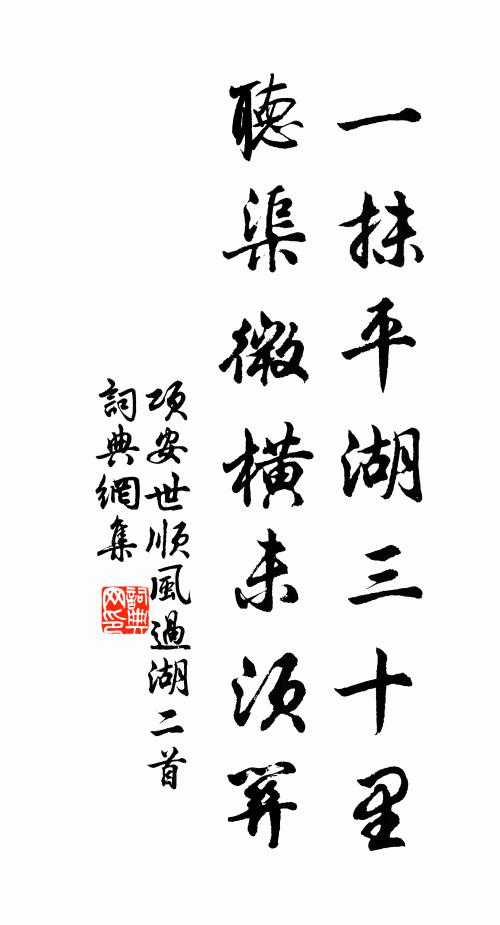 一抹平湖三十里
聽渠微橫未須
項安世順風過湖二首
詞典網集
詞典
网印